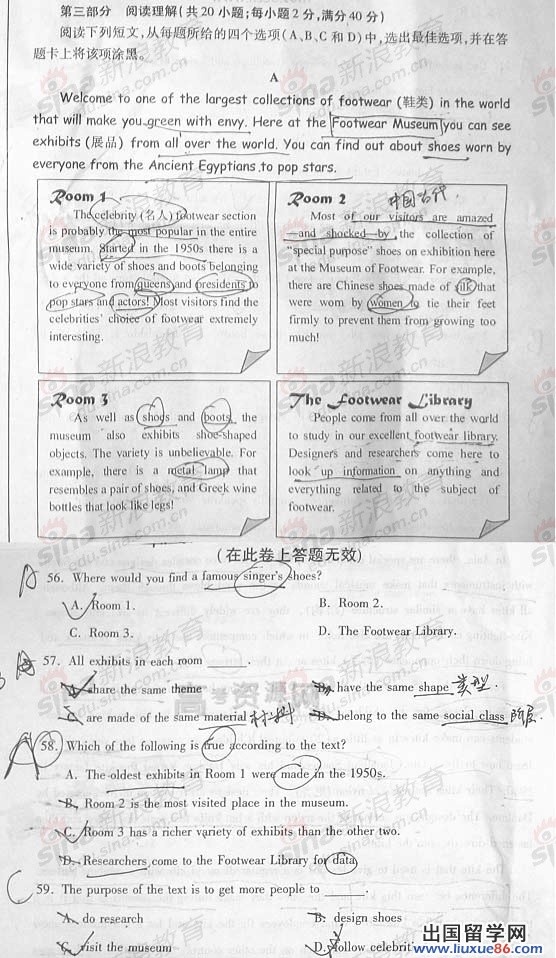 第三部分 阅读理解(共20小题;每小题2分,满分40分)
阅读下列短文,从每题所给的四个选项(A、B、C和D)中,选出最佳选项,并在答
题卡上将该项涂黑。
A
Welcome to one of the largest collections of footwear (鞋类) in the world
that will make you green with envy. Here at the Footwear Museum you can see
exhibits (展品) from all over the world. You can find out about shoes worn by
everyone from the Ancient Egyptians to pop stars.
Room 1
The celebrity (名人) footwear section
is probably the most popular in the entire
museum. Started in the 1950s there is a
wide variety of shoes and boots belonging
to everyone from queens and presidents to
pop stars and actors! Most visitors find the
celebrities' choice of footwear extremely
interesting.
Room 2
中国古代
Most of our visitors are amazed
—and shocked—by the collection of
"special purpose" shoes on exhibition here
at the Museum of Footwear. For example,
there are Chinese shoes made of silk that
were worn by women to tie their feet
firmly to prevent them from growing too
much!
Room 3
As well as shoes and boots, the
museum also exhibits shoe-shaped
objects. The variety is unbelievable. For
example, there is a metal lamp that
resembles a pair of shoes, and Greek wine
bottles that look like legs!
The Footwear Library
People come from all over the world
to study in our excellent footwear library.
Designers and researchers come here to
look up information on anything and
everything related to the subject of
footwear.
(在此卷上答题无效)
A 56. Where would you find a famous singer's shoes?
A. Room 1. B. Room 2.
C. Room 3. D. The Footwear Library.
57. All exhibits in each room ____.
A. share the same theme B. have the same shape 类型
C. are made of the same material 材料 D. belong to the same social class 阶层
A 58. Which of the following is true according to the text?
A. The oldest exhibits in Room 1 were made in the 1950s.
B. Room 2 is the most visited place in the museum.
C. Room 3 has a richer variety of exhibits than the other two.
D. Researchers come to the Footwear Library for data.
C 59. The purpose of the text is to get more people to ____.
A. do research B. design shoes
C. visit the museum D. follow
出国留学网
www.liuxue86.com
sina 新浪教育
edu.sina.com.cn
高考资源网